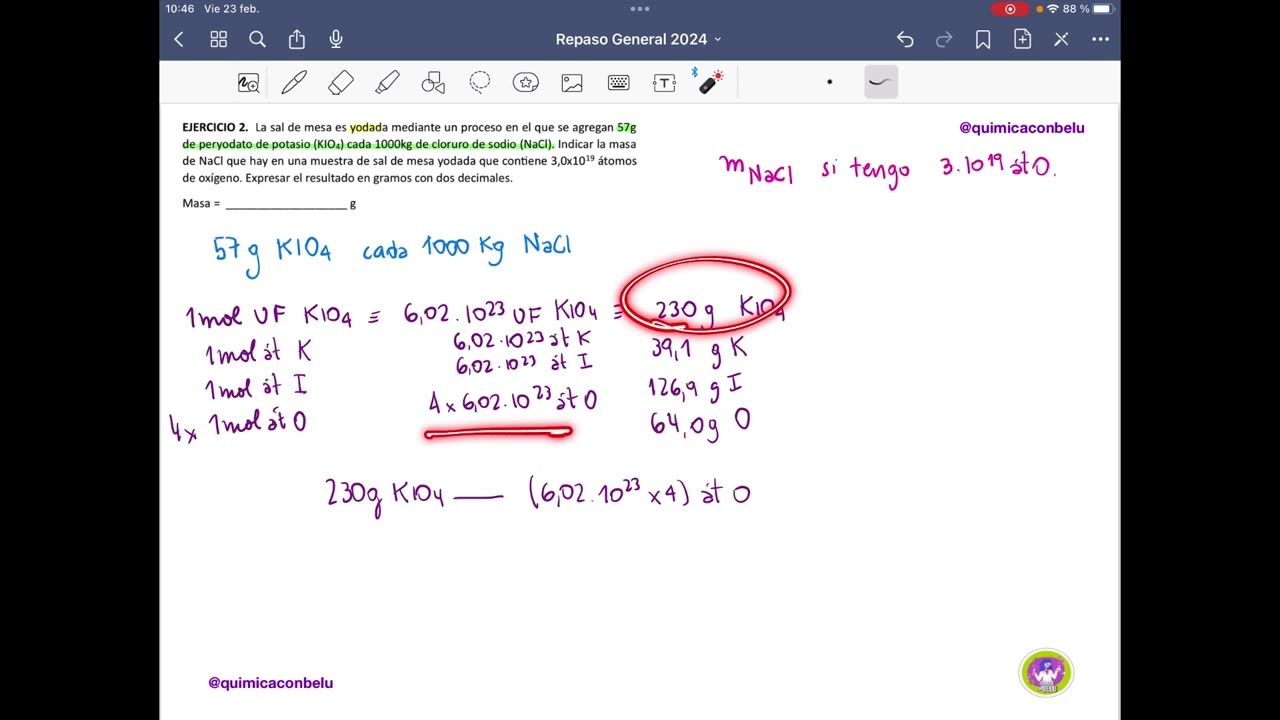 10:46 Vie 23 feb.
88 %
Repaso General 2024
EJERCICIO 2. La sal de mesa es yodada mediante un proceso en el que se agregan 57g
de peryodato de potasio (KIO₄) cada 1000kg de cloruro de sodio (NaCl). Indicar la masa
de NaCl que hay en una muestra de sal de mesa yodada que contiene 3,0x10¹⁹ átomos
de oxígeno. Expresar el resultado en gramos con dos decimales.
Masa = ____________________ g
@quimicaconbelu
m NaCl si tengo 3.10¹⁹ át O.
57g KIO₄ cada 1000 Kg NaCl
1mol UF KIO₄ ≡ 6,02.10²³ UF KIO₄ ≡ 230 g KIO₄
1mol át K 6,02.10²³ át K 39,1 g K
1mol át I 6,02.10²³ át I 126,9 g I
4x 1mol át O 4 x 6,02.10²³ át O 64,0g O
230g KIO₄ — (6,02.10²³ x 4) át O
@quimicaconbelu